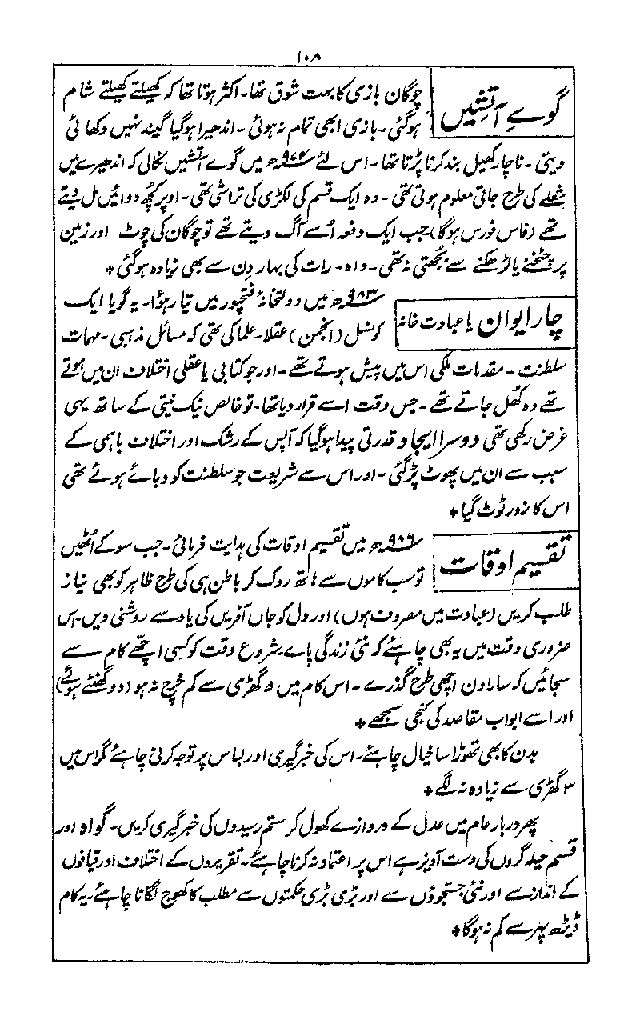 ۱۰۸
گوے آتشیں
چوگان بازی کا بہت شوق تھا۔ اکثر ہوتا تھا کہ کھیلتے کھیلتے شام
ہوگئی۔ بازی ابھی تمام نہ ہوئی۔ اندھیرا ہوگیا گیند نہیں دکھائی
دیتی۔ ناچار کھیل بند کرنا پڑتا تھا۔ اس لئے ۹۷۴ھ میں گوے آتشیں نکالی کہ اندھیرے میں
شعلے کی طرح جاتی معلوم ہوتی تھی۔ وہ ایک قسم کی لکڑی کی تراشی تھی۔ اوپر کچھ دوائیں مل دیتے
تھے (فاس فورس ہوگا) جب ایک دفعہ اُسے آگ دیتے تھے تو چوگان کی چوٹ اور زمین
پر پٹخنے یا رُڑھکنے سے بجھتی نہ تھی۔ واہ۔ رات کی بہار دن سے بھی زیادہ ہوگئی *
چار ایوان یا عبادت خانہ
۹۸۳ھ میں دولتخانۂ فتحپور میں تیار ہوا۔ یہ گویا ایک
کونسل (انجمن) عقلا۔ علما کی تھی کہ مسائل مذہبی۔ مہمات
سلطنت۔ مقدمات ملکی اس میں پیش ہوتے تھے۔ اور جو کتابی یا عقلی اختلاف ان میں ہوتے
تھے وہ کھل جاتے تھے۔ جس وقت اسے قرار دیا تھا۔ تو خالص نیک نیتی کے ساتھ یہی
غرض رکھی تھی دوسرا ایجاد قدرتی پیدا ہوگیا کہ آپس کے رشک اور اختلاف باہمی کے
سبب سے ان میں پھوٹ پڑ گئی۔ اور اس سے شریعت جو سلطنت کو دبائے ہوئے تھی
اس کا زور ٹوٹ گیا *
تقسیم اوقات
۹۸۶ھ میں تقسیم اوقات کی ہدایت فرمائی۔ جب سو کے اُٹھیں
تو سب کاموں سے ہاتھ روک کر باطن ہی کی طرح ظاہر کو بھی نیاز
طلب کریں (عبادت میں مصروف ہوں) اور دل کو جاں آفریں کی یاد سے روشنی دیں۔ اس
ضروری وقت میں یہ بھی چاہئے کہ نئی زندگی پائے۔ شروع وقت کو کسی اچھے کام سے
سجائیں کہ سارا دن اچھی طرح گذرے۔ اس کام میں ۵ گھڑی سے کم خرچ نہ ہو (دو گھنٹے ہوئے)
اور اسے ابواب مقاصد کی کنجی سمجھے *
بدن کا بھی تھوڑا سا خیال چاہئے۔ اس کی خبرگیری اور لباس پر توجہ کرنی چاہئے مگر اس میں
۳ گھڑی سے زیادہ نہ لگے *
پھر دربار عام میں عدل کے دروازے کھول کر ستم رسیدوں کی خبرگیری کریں۔ گواہ اور
قسم حیلہ گروں کی دست آویز ہے اس پر اعتماد نہ کرنا چاہئے۔ تقریروں کے اختلاف اور قیافوں
کے انداز سے اور نئی نئی جستجوؤں سے اور بڑی بڑی حکمتوں سے مطلب کا کھوج لگانا چاہئے۔ یہ کام
ڈیڑھ پہر سے کم نہ ہوگا *